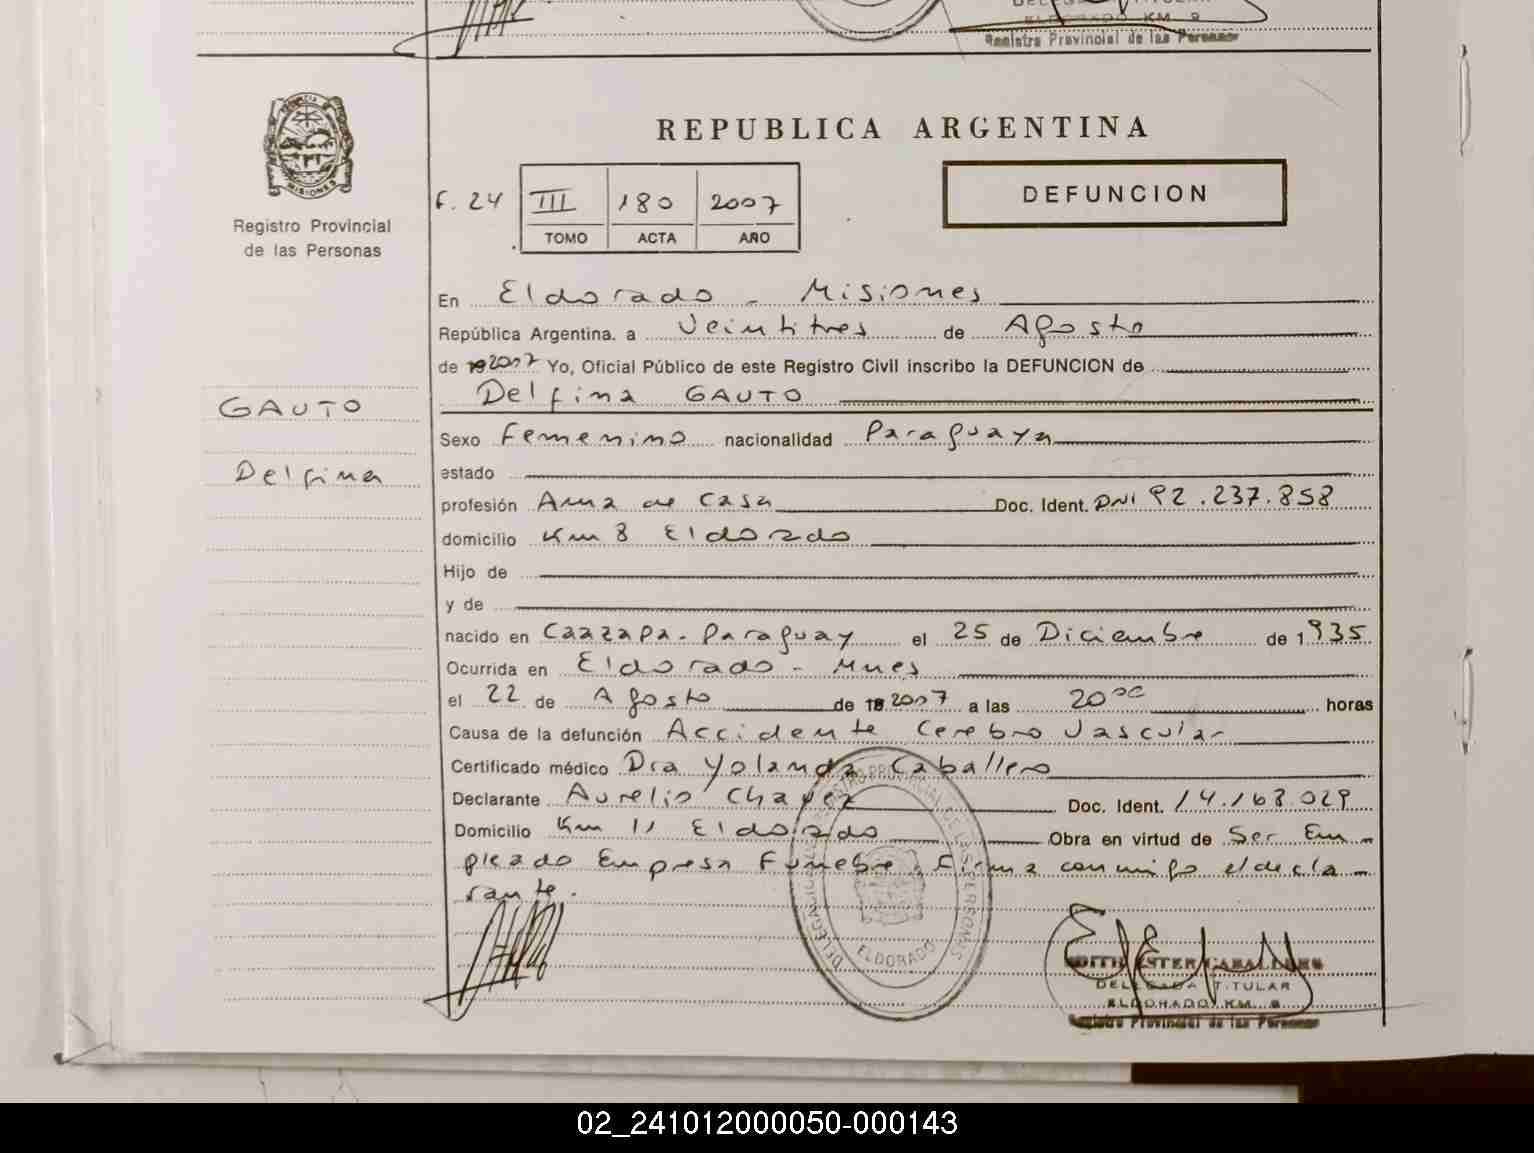 DELEGADA TITULAR
ELDORADO KM 9
Registro Provincial de las Personas
REPUBLICA ARGENTINA
DEFUNCION
F. 24 III 180 2007
TOMO ACTA AÑO
Registro Provincial
de las Personas
GAUTO
Delfina
En Eldorado - Misiones
República Argentina. a Veintitres de Agosto
de 19 2007 Yo, Oficial Público de este Registro Civil inscribo la DEFUNCION de
Delfina GAUTO
Sexo Femenino nacionalidad Paraguaya
estado
profesión Ama de Casa Doc. Ident. DNI 92.237.858
domicilio Km 8 Eldorado
Hijo de
y de
nacido en Caazapa - Paraguay el 25 de Diciembre de 1935
Ocurrida en Eldorado - Mnes
el 22 de Agosto de 19 2007 a las 20 00 horas
Causa de la defunción Accidente Cerebro Vascular
Certificado médico Dra Yolanda Caballero
Declarante Aurelio Chavez Doc. Ident. 14.168.029
Domicilio Km 11 Eldorado Obra en virtud de Ser Em-
pleado Empresa Funebre, Firma conmigo el decla-
rante.
DELEGACION REGISTRO PROVINCIAL DE LAS PERSONAS
ELDORADO
EDITH ESTER CABALLERO
DELEGADA TITULAR
ELDORADO KM. 9
Registro Provincial de las Personas
02_241012000050-000143